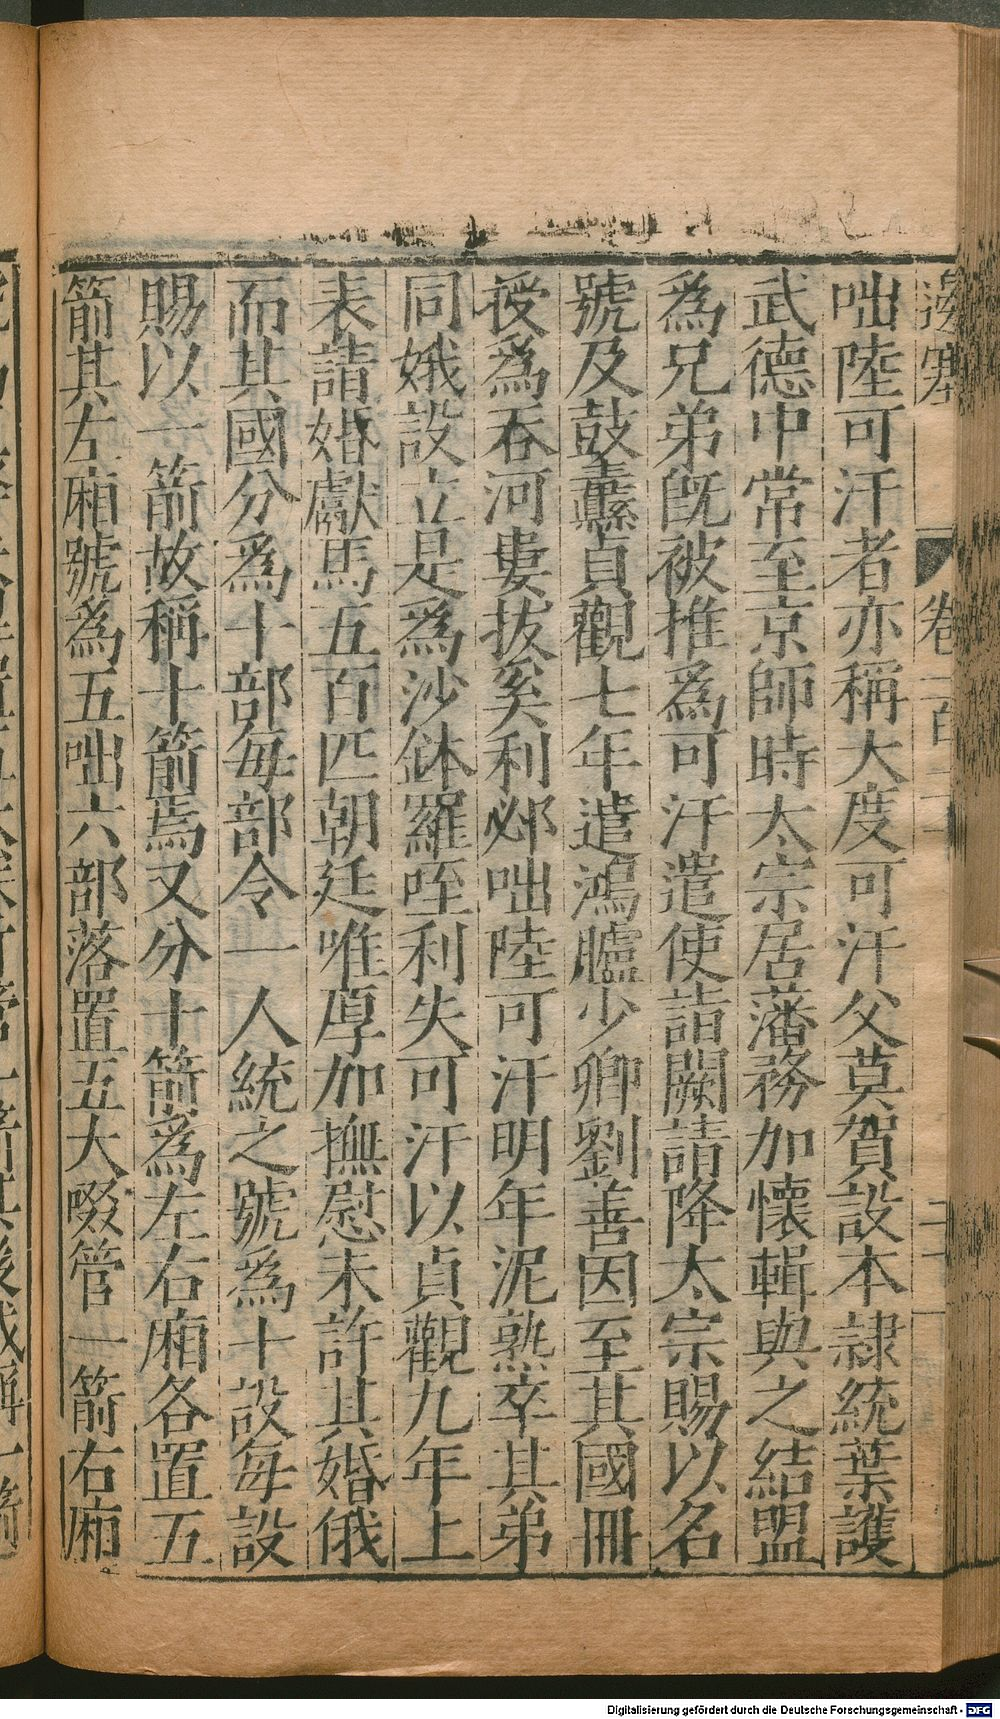 邊塞 卷二百
咄陸可汗者亦稱大度可汗父莫賀設本隷統葉護
武德中常至京師時太宗居藩務加懷輯與之結盟
爲兄弟旣被推爲可汗遣使詣闕請降太宗賜以名
號及鼓纛貞觀七年遣鴻臚少卿劉善因至其國冊
授爲吞河婁拔奚利邲咄陸可汗明年泥熟卒其弟
同娥設立是爲沙鉢羅咥利失可汗以貞觀九年上
表請婚獻馬五百匹朝廷唯厚加撫慰未許其婚俄
而其國分爲十部每部令一人統之號爲十設每設
賜以一箭故稱十箭焉又分十箭爲左右廂各置五
箭其左廂號爲五咄六部落置五大啜管一箭右廂
Digitalisierung gefördert durch die Deutsche Forschungsgemeinschaft - DFG